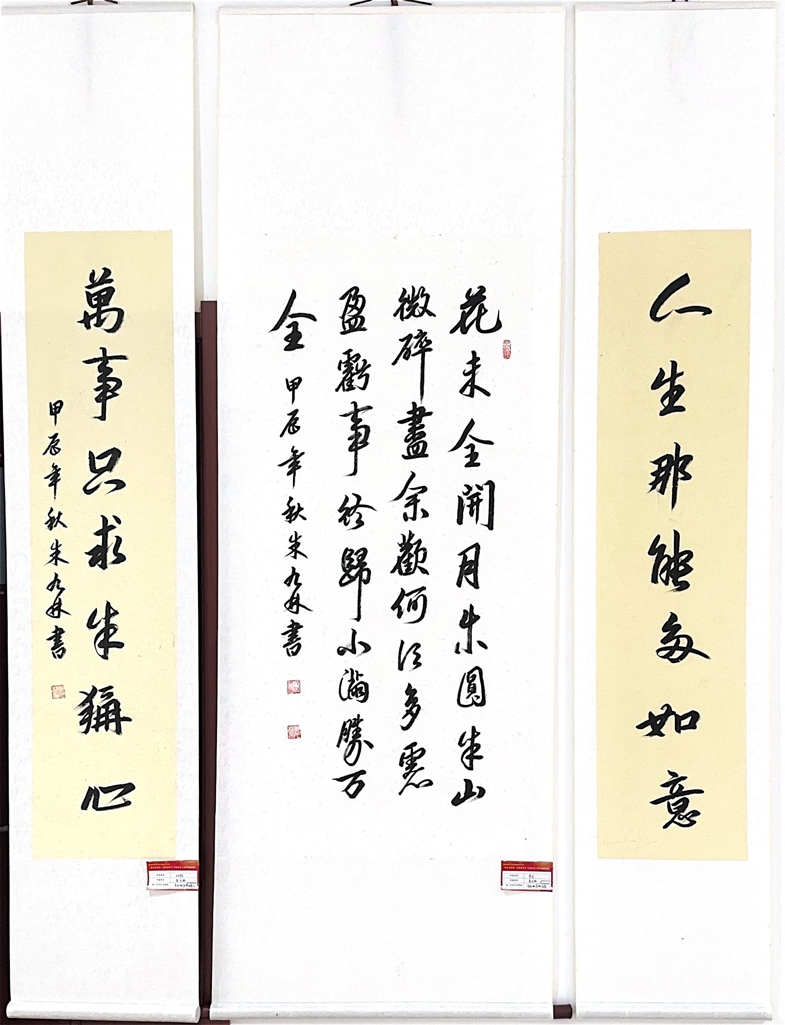 人生那能多如意
花未全開月未圓半山
微醉盡余歡何須多慮
盈虧事終歸小滿勝万
全 甲辰年秋朱林書
萬事只求半稱心
甲辰年秋朱林書